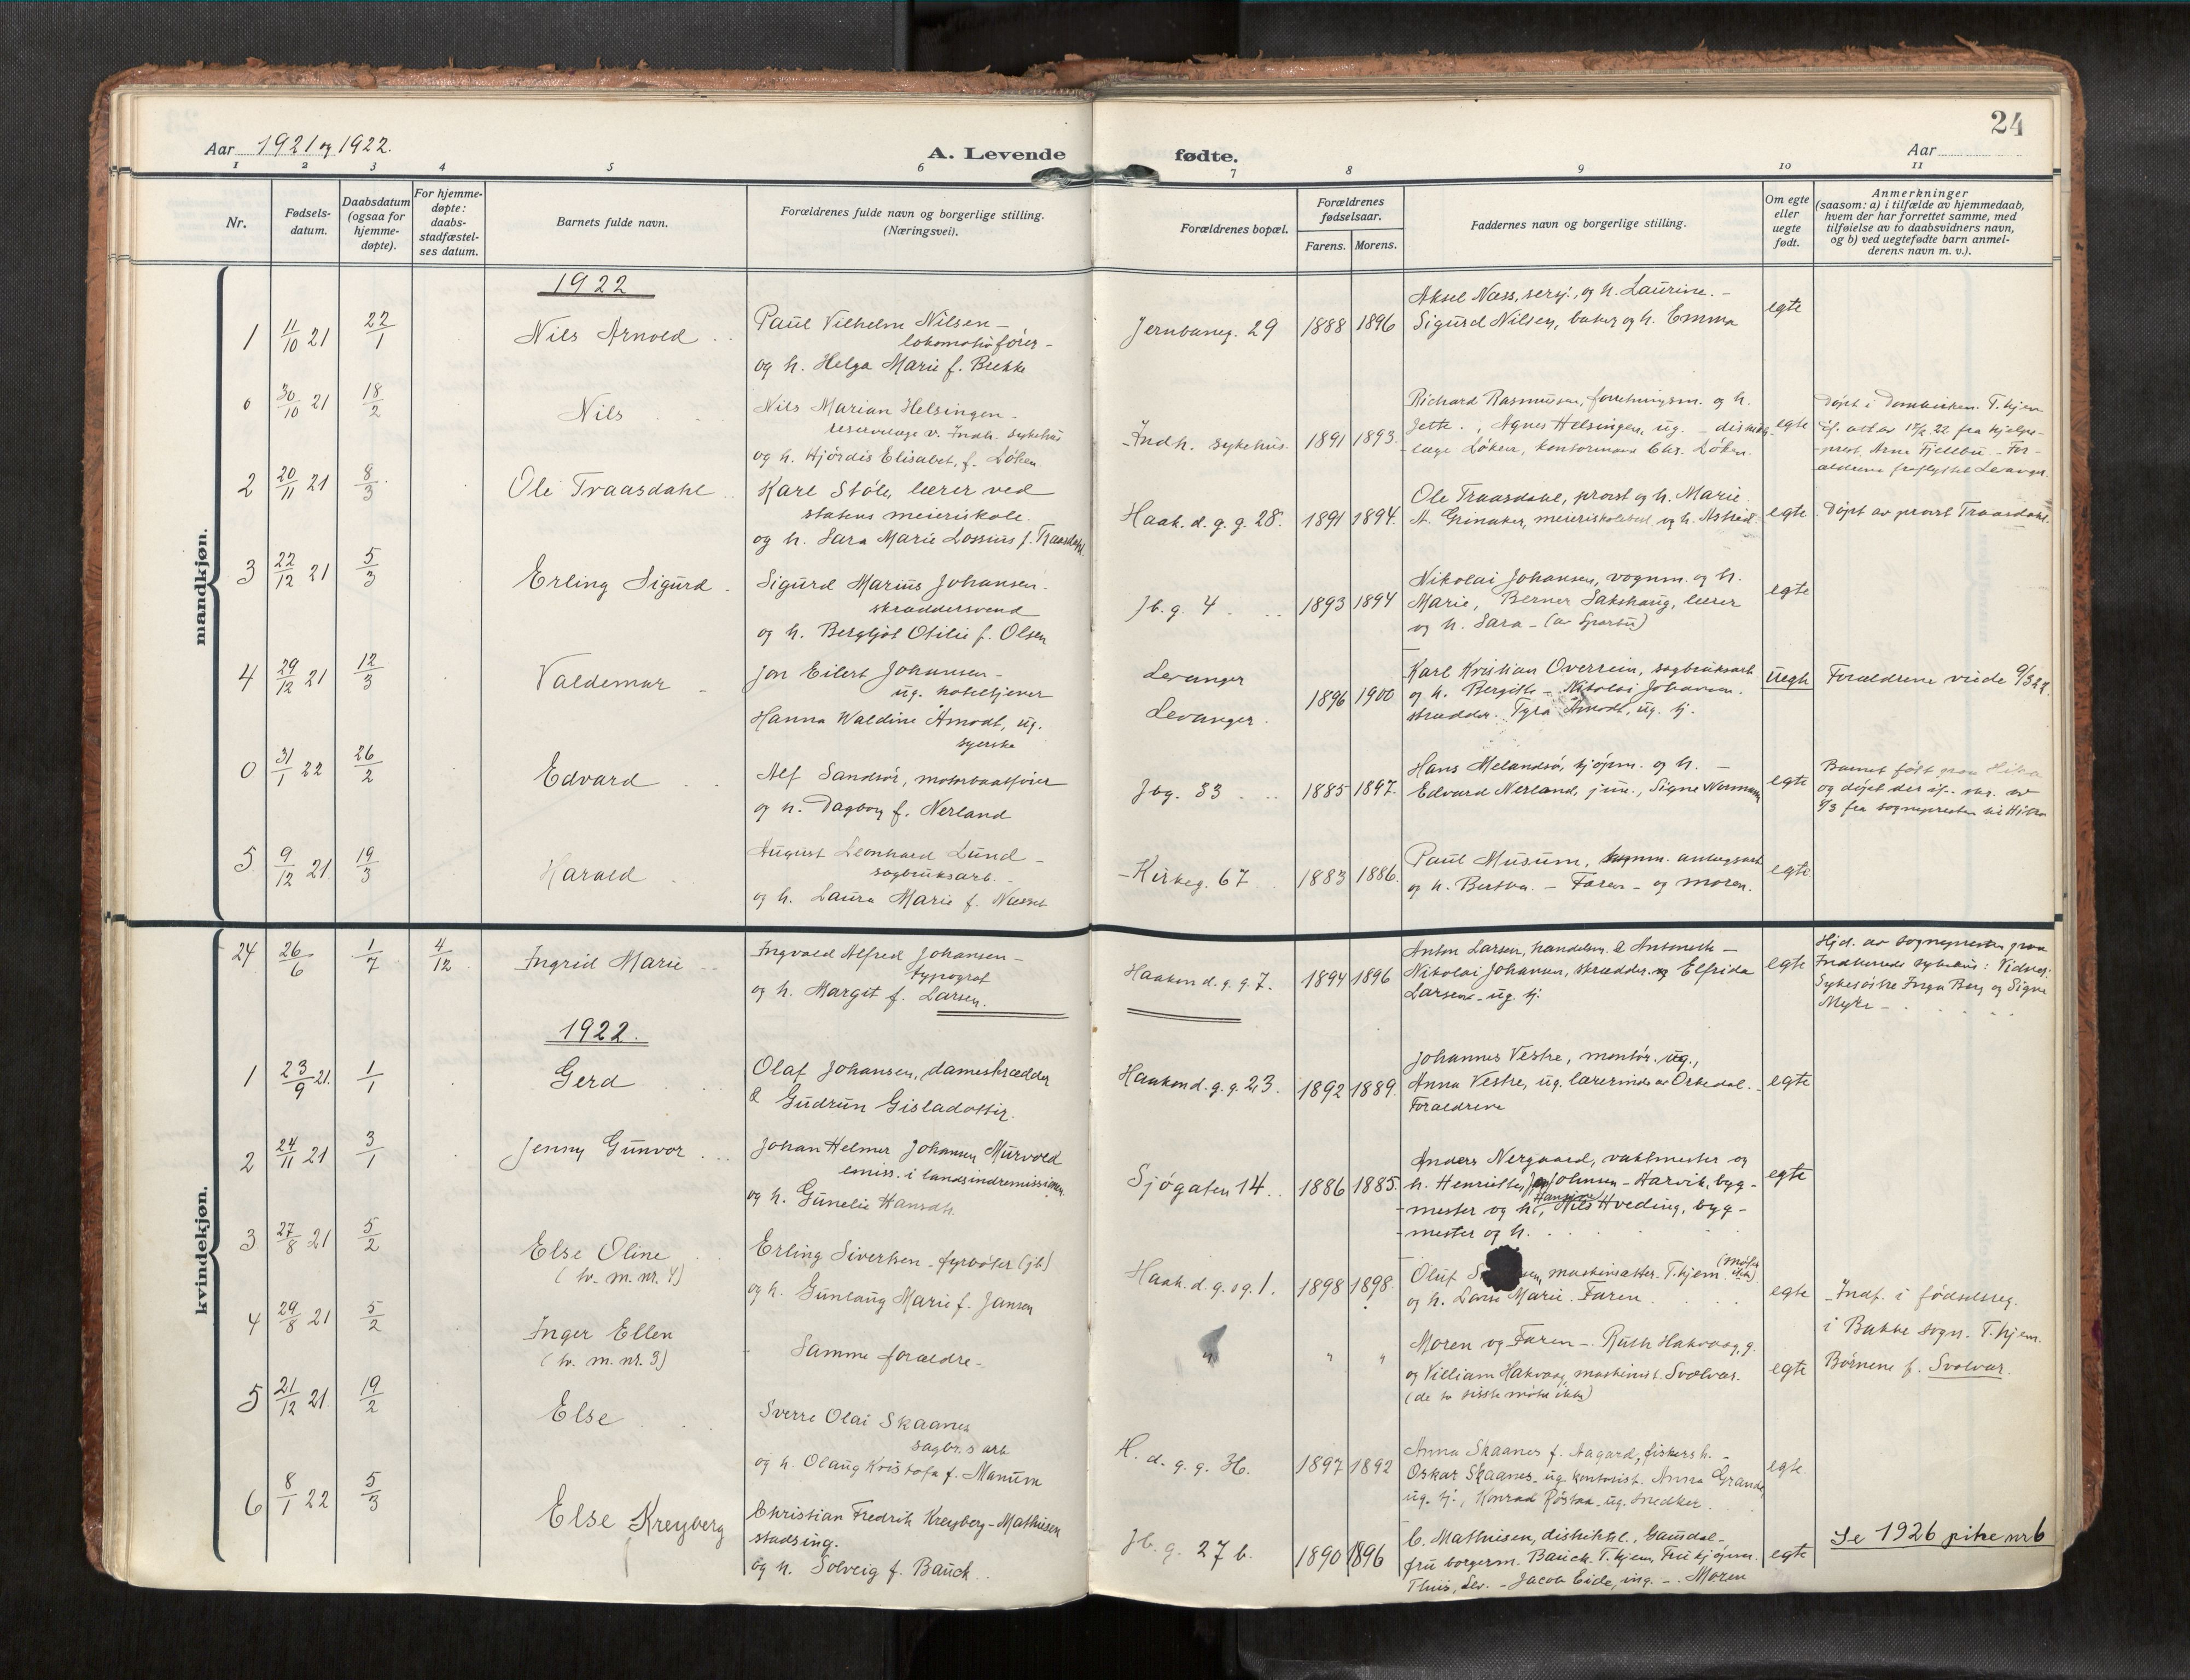 24
Aar 1921 og 1922.
A. Levende
fødte.
Aar
1 2 3 4 5 6 7 8 9 10 11
Nr.
Fødsels-
datum.
Daabsdatum
(ogsaa for
hjemme-
døpte).
For hjemme-
døpte:
daabs-
stadfæstel-
ses datum.
Barnets fulde navn.
Forældrenes fulde navn og borgerlige stilling.
(Næringsvei).
Forældrenes bopæl.
Forældrenes
fødselsaar.
Farens. Morens.
Faddernes navn og borgerlige stilling.
Om egte
eller
uegte
født.
Anmerkninger
(saasom: a) i tilfælde av hjemmedaab,
hvem der har forrettet samme, med
tilføielse av to daabsvidners navn,
og b) ved uegtefødte barn anmel-
derens navn m. v.).
mandkjøn.
1922
1 11/10 21 22/1
Nils Arnold
Paul Vilhelm Nilsen -
lokomotivfører -
og h. Helga Marie f. Brekke
Jernbaneg. 29 1888 1896
Aksel Næss, sersj., og h. Laurine. -
Sigurd Nilsen, baker og h. Emma
egte
0 30/10 21 18/2
Nils
Nils Marian Helsingen -
reservelæge v. Indh. sykehus
og h. Hjördis Elisabet, f. Löken
Indh. sykehus. 1891 1893.
Richard Rasmussen, forretningsm. og h.
Jette., Agnes Helsingen, ug. - distrikts-
læge Löken, kontormand Chr. Löken.
egte
Döpt i Domkirken. T.hjem
if. att av 17/2 22 fra hjelpe-
prest Arne Fjellbu - For-
ældrene fraflyttet Levanger.
2 20/11 21 8/3
Ole Traasdahl
Karl Støle, lærer ved
statens meieriskole.
og h. Sara Marie Lossius f. Traasdahl.
Haak. d. g. g. 28. 1891 1894.
Ole Traasdahl, prost og h. Marie
A. Grinaker, meieriskolebest. og h. Astrid.
egte
Döpt av prost Traasdahl.
3 22/12 21 5/3
Erling Sigurd
Sigurd Marius Johansen -
skræddersvend
og h. Bergljot Otilie f. Olsen
Jb. g. 4 1893 1894
Nikolai Johansen, vognm. og h.
Marie, Berner Sakshaug, lærer
og h. Sara - (av Sparbu)
egte
4 29/12 21 12/3
Valdemar
Jon Eilert Johansen -
ug. hoteltjener
Hanna Waldine Åmodt, ug.
syerske
Levanger
Levanger.
1896 1900
Karl Kristian Overrein, sagbruksarb
og h. Bergitte - Nikolai Johansen.
skrædder. Tyra Åmodt, ug. tj.
uegte
Forældrene viede 9/3 22.
0 31/1 22 26/2
Edvard
Alf Sandsör, motorbaatförer
og h. Dagborg f. Nerland
Jbg. 33 1885 1897.
Hans Melandsö, kjöpm. og h. -
Edvard Nerland, jun., Signe Normann
egte
Barnet födt paa Hitra
og döpt der if. av
9/3 fra sognepresten til Hitra
5 9/12 21 19/3
Harald
August Leonhard Lund -
sagbruksarb. -
og h. Laura Marie f. Næsset
Kirkeg. 67 1883 1886.
Paul Musum, anlægsarb
og h. Berta. - Faren - og moren.
egte.
kvindekjøn.
24 26/6 1/7 4/12
Ingrid Marie
Ingvald Alfred Johansen -
typograf
og h. Margit f. Larsen.
Haakon d. g. g. 7. 1894 1896
Anton Larsen, handelsm. & Antonette -
Nikolai Johansen, skrædder. og Elfrida
Larsen - ug. tj.
egte
Hjd. av sognepresten paa
Indherreds sykehus: Vidner:
Sykesöstre Inga Berg og Signe
Myhre -
1922.
1 23/9 21. 1/1
Gerd
Olaf Johansen, dameskrædder
& Gudrun Gisladottir.
Haakon d. g. g. 23. 1892 1889.
Johannes Vestre, montör. ug.,
Anna Vestre, ug. lærerinde av Orkedal. -
Forældrene
egte
2 24/11 21 3/1
Jenny Gunvor
Johan Helmer Johansen Murvold
emiss. i landsindremissionen
og h. Gunelie Hansdtr.
Sjögaten 14. 1886 1885.
Anders Nergaard, vaktmester og
h. Henriette, Johnsen - Harvik, byg-
mester og h. Hansine, Nils Hveding, byg-
mester og h.
egte
3 27/8 21 5/2
Else Oline
(tv. m. nr. 4)
Erling Sivertsen - fyrböter (jb.)
og h. Gunlaug Marie f. Jansen
Haak. d. g. og. 1. 1898 1898.
Oluf maskinsætter. T.hjem (möter ikke)
og h. Marie. Faren
egte
Indf. i födselsreg.
i Bakke sogn. T.hjem.
4 29/8 21 5/2
Inger Ellen
(tv. m. nr. 3)
Samme forældre -
" " "
Moren og Faren - Ruth Hakvaag, g.
og Villiam Hakvaag, maskinist. Svolvær.
(de to sisste möter ikke)
egte
Börnene f. Svolvær.
5 21/12 21. 19/2
Else
Sverre Olai Skaanes
sagbr.s arb
og h. Olaug Kristofa f. Manum
H. d. g. g. 36. 1897 1892
Anna Skaanes f. Aagard, fiskersh. -
Oskar Skaanes - ug. kontorist. Anna Grande
ug. tj., Konrad Röstad - ug. snedker.
egte
6 8/1 22 5/3
Else Kreyberg
Christian Fredrik Kreyberg - Mathiesen
stadsing.
og h. Solveig f. Bauck
Jb. g. 27 b. 1890 1896
C. Mathiesen, distriktsl., Gausdal -
fru borgerm. Bauck. T.hjem, Fru kjöpm.
Thiis, Lev. - Jacob Eide, ing. - Moren
egte
Se 1926 pike nr 6